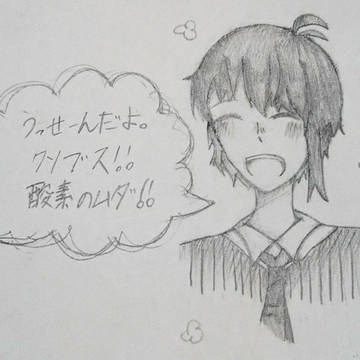 うっせーんだよ。
クソブス!!
酸素のムダ!!